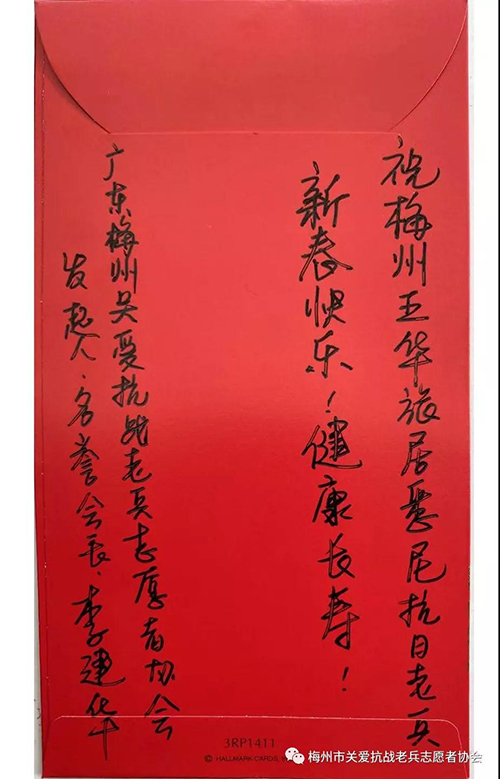 祝梅州五华旅居悉尼抗日老兵
新春快乐！健康长寿！
广东梅州关爱抗战老兵志愿者协会
发起人·名誉会长·李建华
3RP1411
© HALLMARK CARDS,
梅州市关爱抗战老兵志愿者协会